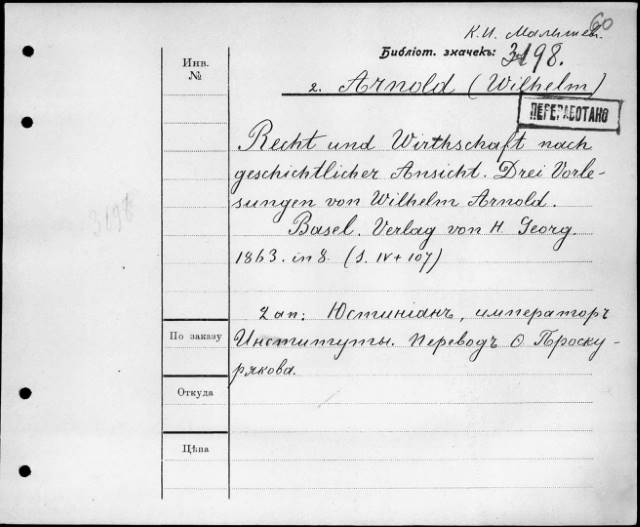 60
К. И. Малышев.
Библіот. значекъ: 3198.
Инв.
№
2. Arnold (Wilhelm)
ПЕРЕРАБОТАНО
Recht und Wirthschaft nach
geschichtlicher Ansicht. Drei Vorle-
sungen von Wilhelm Arnold.
3198
Basel. Verlag von H. Georg.
1863. in 8. (S. IV + 107)
2 ап: Юстиніанъ, императоръ
По заказу
Институты. Переводъ О Проску-
рякова.
Откуда
Цѣна